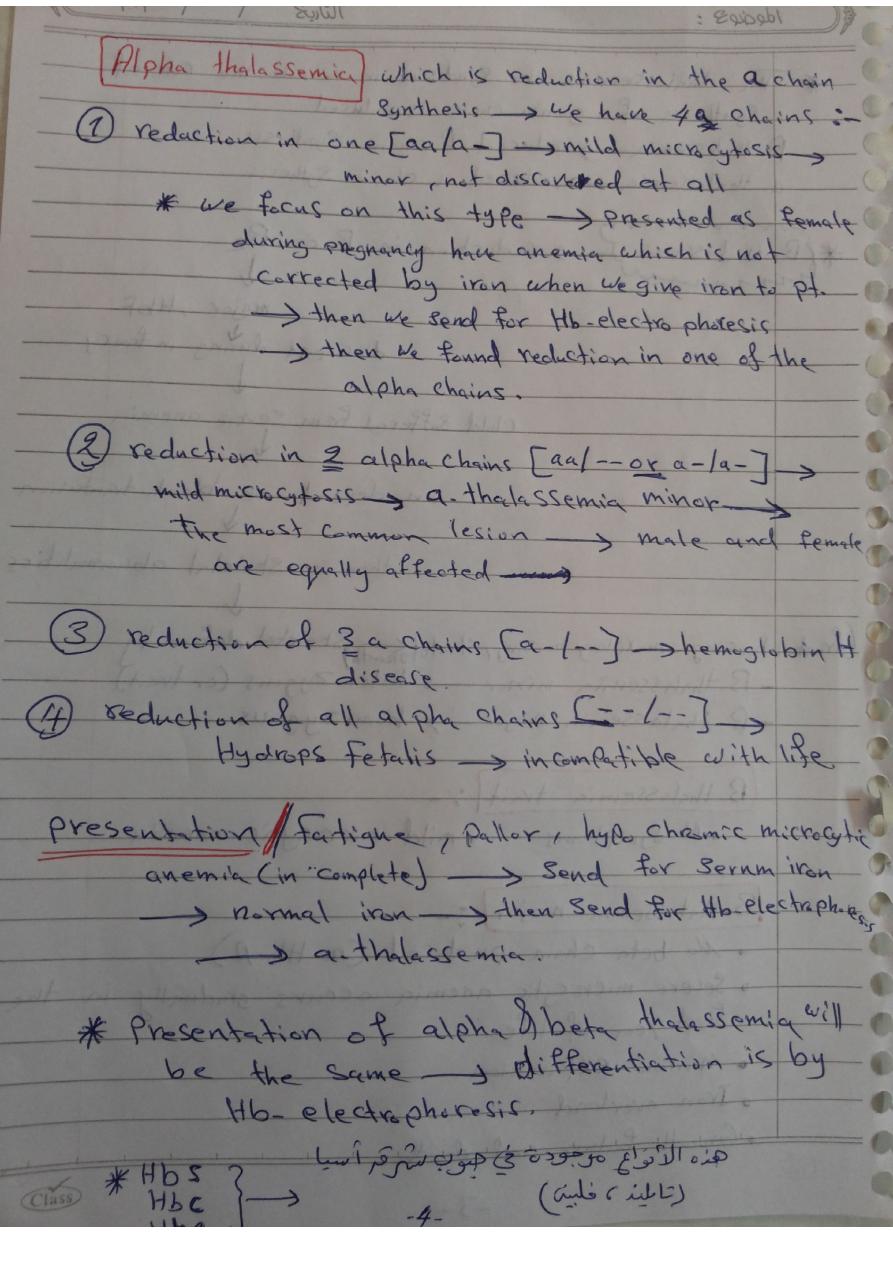 الموضوع : التاريخ / /
Alpha thalassemia which is reduction in the a chain
synthesis → we have 4a chains :-
① reduction in one [aa/a-] → mild microcytosis →
minor, not discovered at all
* we focus on this type → presented as female
during pregnancy have anemia which is not
corrected by iron when we give iron to pt.
→ then we send for Hb-electrophoresis
→ then we found reduction in one of the
alpha chains.
② reduction in 2 alpha chains [aa/-- or a-/a-] →
mild microcytosis → a.thalassemia minor →
the most common lesion → male and female
are equally affected →
③ reduction of 3 a chains [a-/--] → hemoglobin H
disease.
④ reduction of all alpha chains [--/--] →
Hydrops fetalis → incompatible with life
presentation // fatigue, pallor, hypo chromic microcytic
anemia (in complete) → send for serum iron
→ normal iron → then send for Hb-electrophoresis
→ a.thalassemia.
* Presentation of alpha & beta thalassemia will
be the same → differentiation is by
Hb-electrophoresis.
* Hb S } → هذه الأنواع موجودة في جنوب شرق آسيا
Hb C (تايلند، فلبين)
Class
-4-